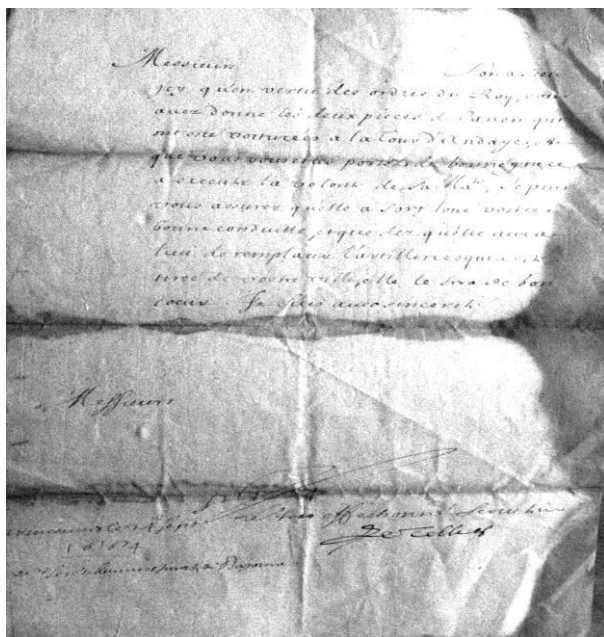 Messieurs
qu'en vertu des ordres du Roy, vous
avez donné les deux pieces de Canon qui
ont esté voiturées a la Tour d'Andaye, et
que vous vous estes portez de bonne grace
a executer la volonté de Sa Ma.té Je puis
vous assurer qu'elle a fort loué vostre
bonne conduitte, et que dez qu'elle aura
lieu de remplacer l'artillerie qui a esté
tirée de vostre ville, elle le fera de bon
coeur. Je suis avec sincerité
Messieurs
le 28 sept
Vostre affectionné Serviteur
1674
Le Tellier
a Bayonne